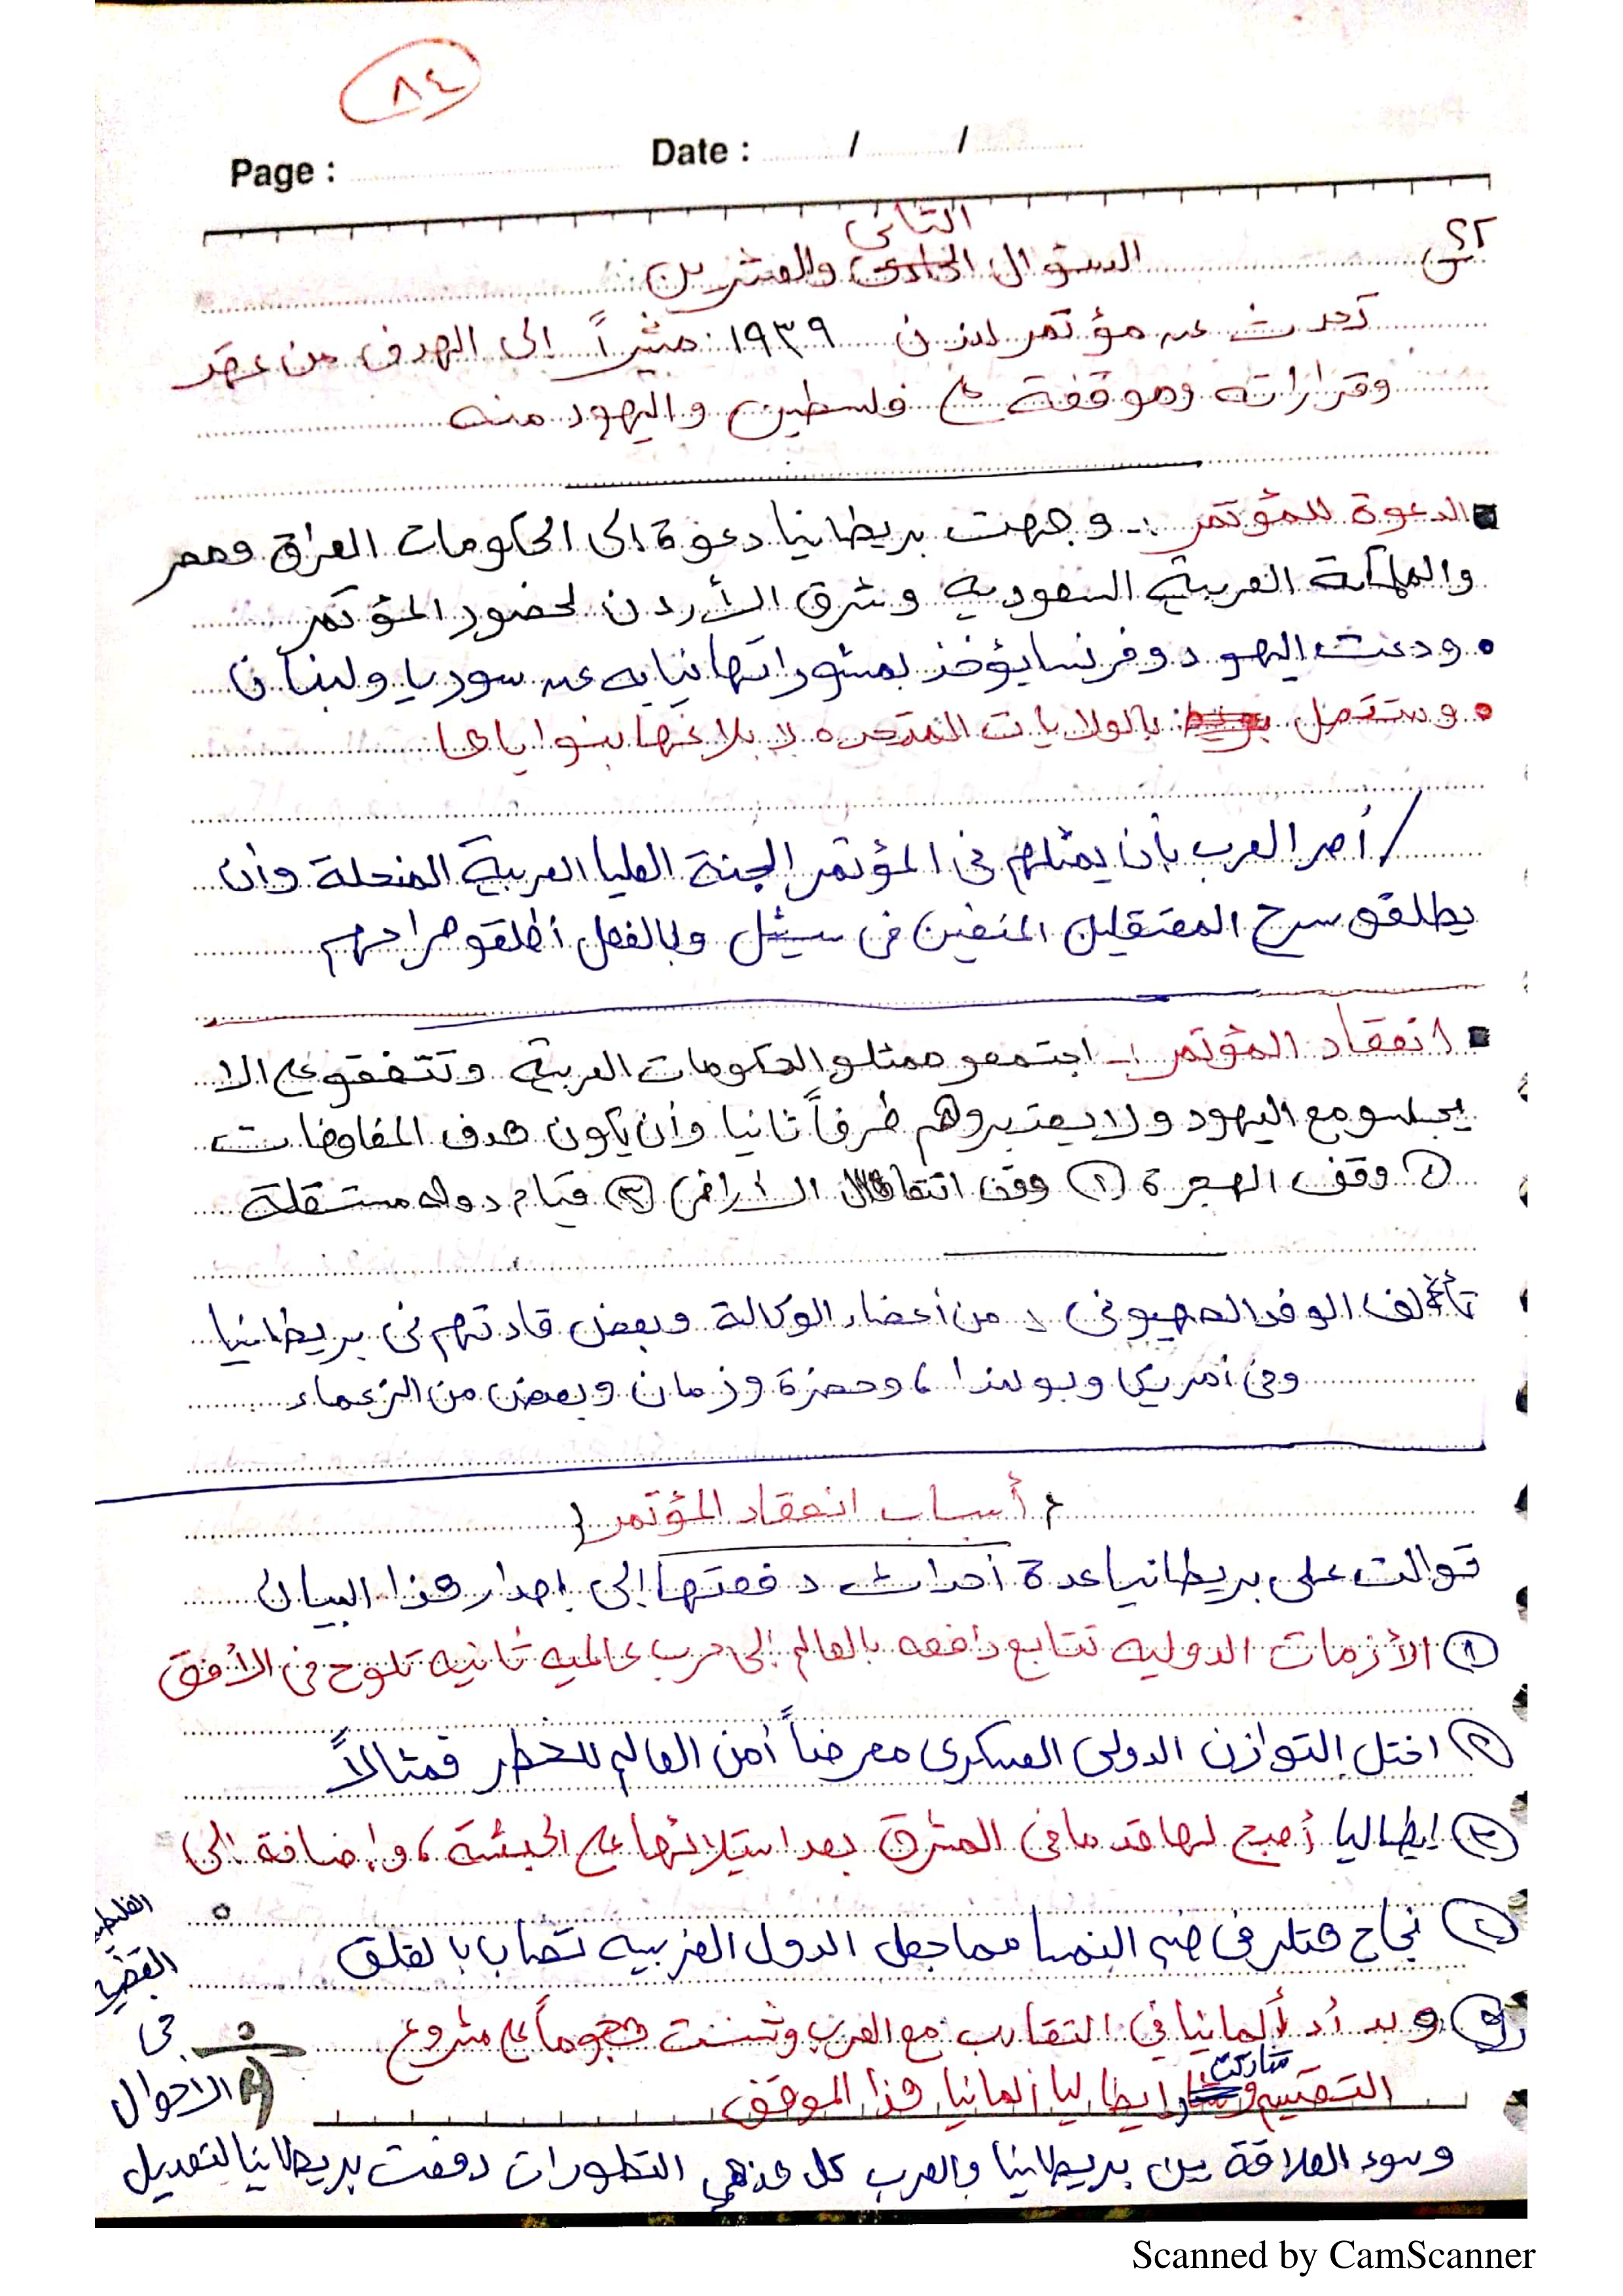 ٨٤
Page :
Date : / /
س٢٢
الثاني
السؤال الحادى والعشرين
تحدث عن مؤتمر لندن ١٩٣٩ مشيراً إلى الهدف من عقد
وقراراته وموقفة ع فلسطين واليهود منه
الدعوة للمؤتمر :- وجهت بريطانيا دعوة إلى الحكومات العراق ومصر
والمملكة العربية السعودية وشرق الأردن لحضور المؤتمر
• ودعت اليهود وفرنسا يؤخذ بمشوراتها نيابه عن سوريا ولبنان
• وستتصل بالولايات المتحده لابلاغها بنواياها
/ أصر العرب بأن يمثلهم فى المؤتمر الجنة العليا العربية المنحلة وأن
يطلقو سرح المعتقلين المنفين فى سيشل وبالفعل أطلقو صراحهم
انعقاد المؤتمر :- اجتمعو ممثلو الحكومات العربية وتتفقو على الا
يجلسو مع اليهود ولا يعتبروهم طرفاً ثانيا وأن يكون هدف المفاوضات
١ وقف الهجرة ٢ وقف انتقال الأراضى ٣ قيام دوله مستقلة
تألف الوفد الصهيونى من أعضاء الوكالة وبعض قادتهم فى بريطانيا
وفى أمريكا وبولندا ، وحضرة وزمان وبعض من الزعماء
{ أسباب انعقاد المؤتمر }
توالت على بريطانيا عدة أحداث دفعتها إلى إصدار هذا البيان
١ الأزمات الدوليه تتابع دافعه بالعالم إلى حرب عالميه ثانيه تلوح فى الأفق
٢ اختل التوازن الدولى العسكرى معرضاً أمن العالم للخطر فمثالاً
٣ ايطاليا أصبح لها قدما فى المشرق بعد استيلائها على الحبشة ، وإضافة إلى
٤ نجاح هتلر فى ضم النمسا مما جعل الدول الغربيه تصاب بالقلق
٥ وبدأت ألمانيا في التقارب مع العرب وشنت هجوماً على مشروع
شاركت
التقسيم و ايطاليا ألمانيا هذا الموقف
وسوء العلاقة بين بريطانيا والعرب كل هذهي التطورات دفعت بريطانيا لتعديل
الاحوال
فى
القضيه
Scanned by CamScanner